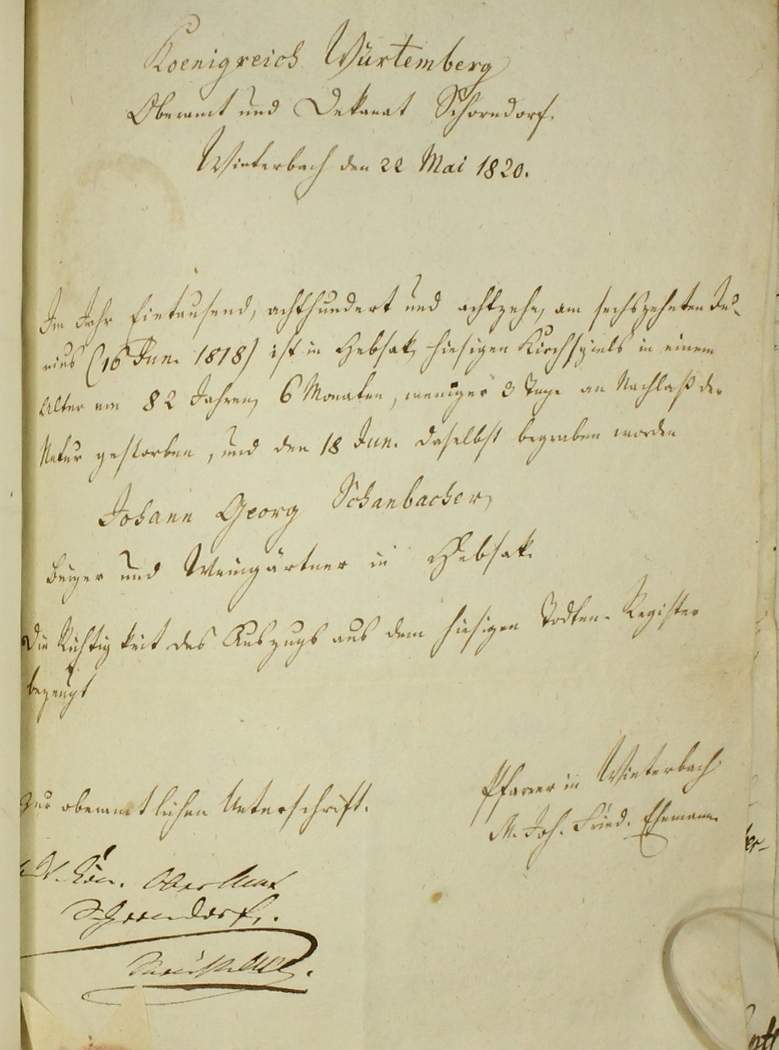 Koenigreich Würtemberg
Oberamt und Dekanat Schorndorf.
Winterbach den 22 Mai 1820.
Im Jahr Eintausend, achthundert und achtzehn, am sechszehnten Ju-
nius (16 Jun. 1818) ist in Hebsak, hiesigen Kirchspiels in einem
Alter von 82 Jahren, 6 Monaten, weniger 3 Tage an Nachlaß der
Natur gestorben, und den 18 Jun. daselbst begraben worden
Johann Georg Schanbacher,
Bürger und Weingärtner in Hebsak.
Die Richtigkeit des Auszugs aus dem hiesigen Todten-Register
bezeugt
Pfarrer in Winterbach
M. Joh. Fried. Ehemann.
Zur oberamtlichen Unterschrift.
Kön. OberAmt
Schorndorf.